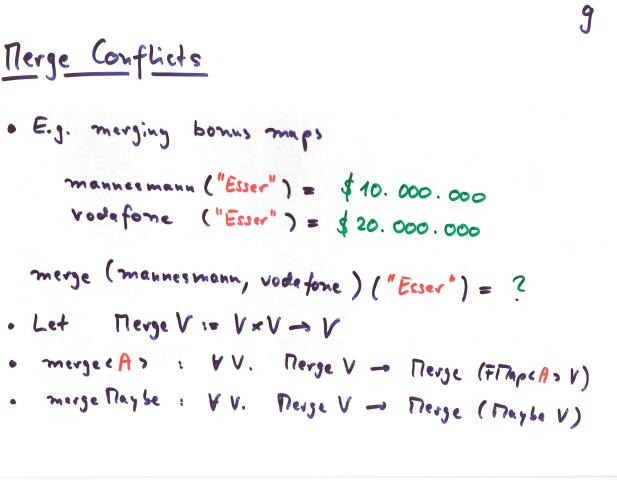 9
Merge Conflicts
• E.g. merging bonus maps
mannesmann ("Esser") = $10.000.000
vodafone ("Esser") = $20.000.000
merge (mannesmann, vodafone) ("Esser") = ?
• Let Merge V := V×V → V
• merge<A> : ∀V. Merge V → Merge (FMap<A> V)
• mergeMaybe : ∀V. Merge V → Merge (Maybe V)